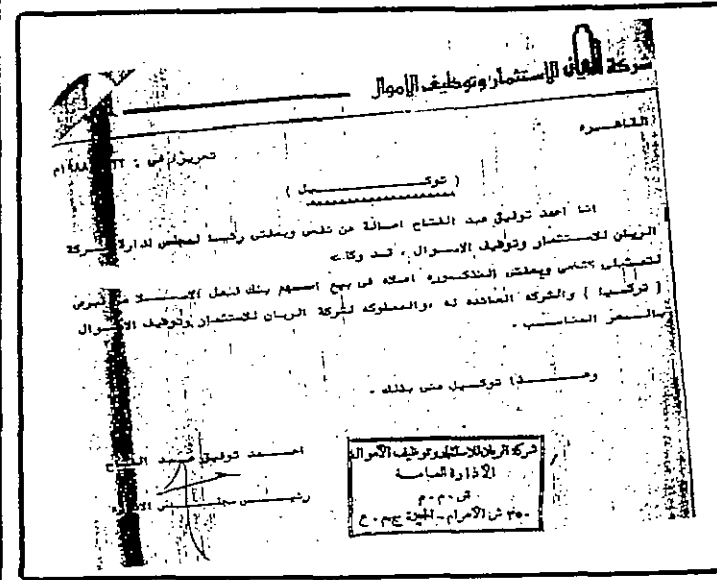 شركة الريان للاستثمار وتوظيف الاموال
القاهـره
تحريرًا في :
( توكـــــيل )
انا احمد توفيق عبد الفتاح اصالة عن نفسى وبصفتى رئيسا لمجلس ادارة شركة
الريان للاستثمار وتوظيف الامـوال ، قـد وكلت
فى بيع اسهم بنك فيصل الاسـلامى قبرص
( تركيـا ) والشركة العائده له ،والمملوكه لشركة الريان للاستثمار وتوظيف الامـوال
بالـسعر المناسـب .
وهـــذا توكـيل منى بذلك .
احـمد توفيق عـبد الفتاح
رئيـس مجلـس الادارة
شركة الريان للاستثمار وتوظيف الأموال
الإدارة العامـة
ش . م . م
٣٥٠ ش الأهرام - الجيزة ج.م.ع